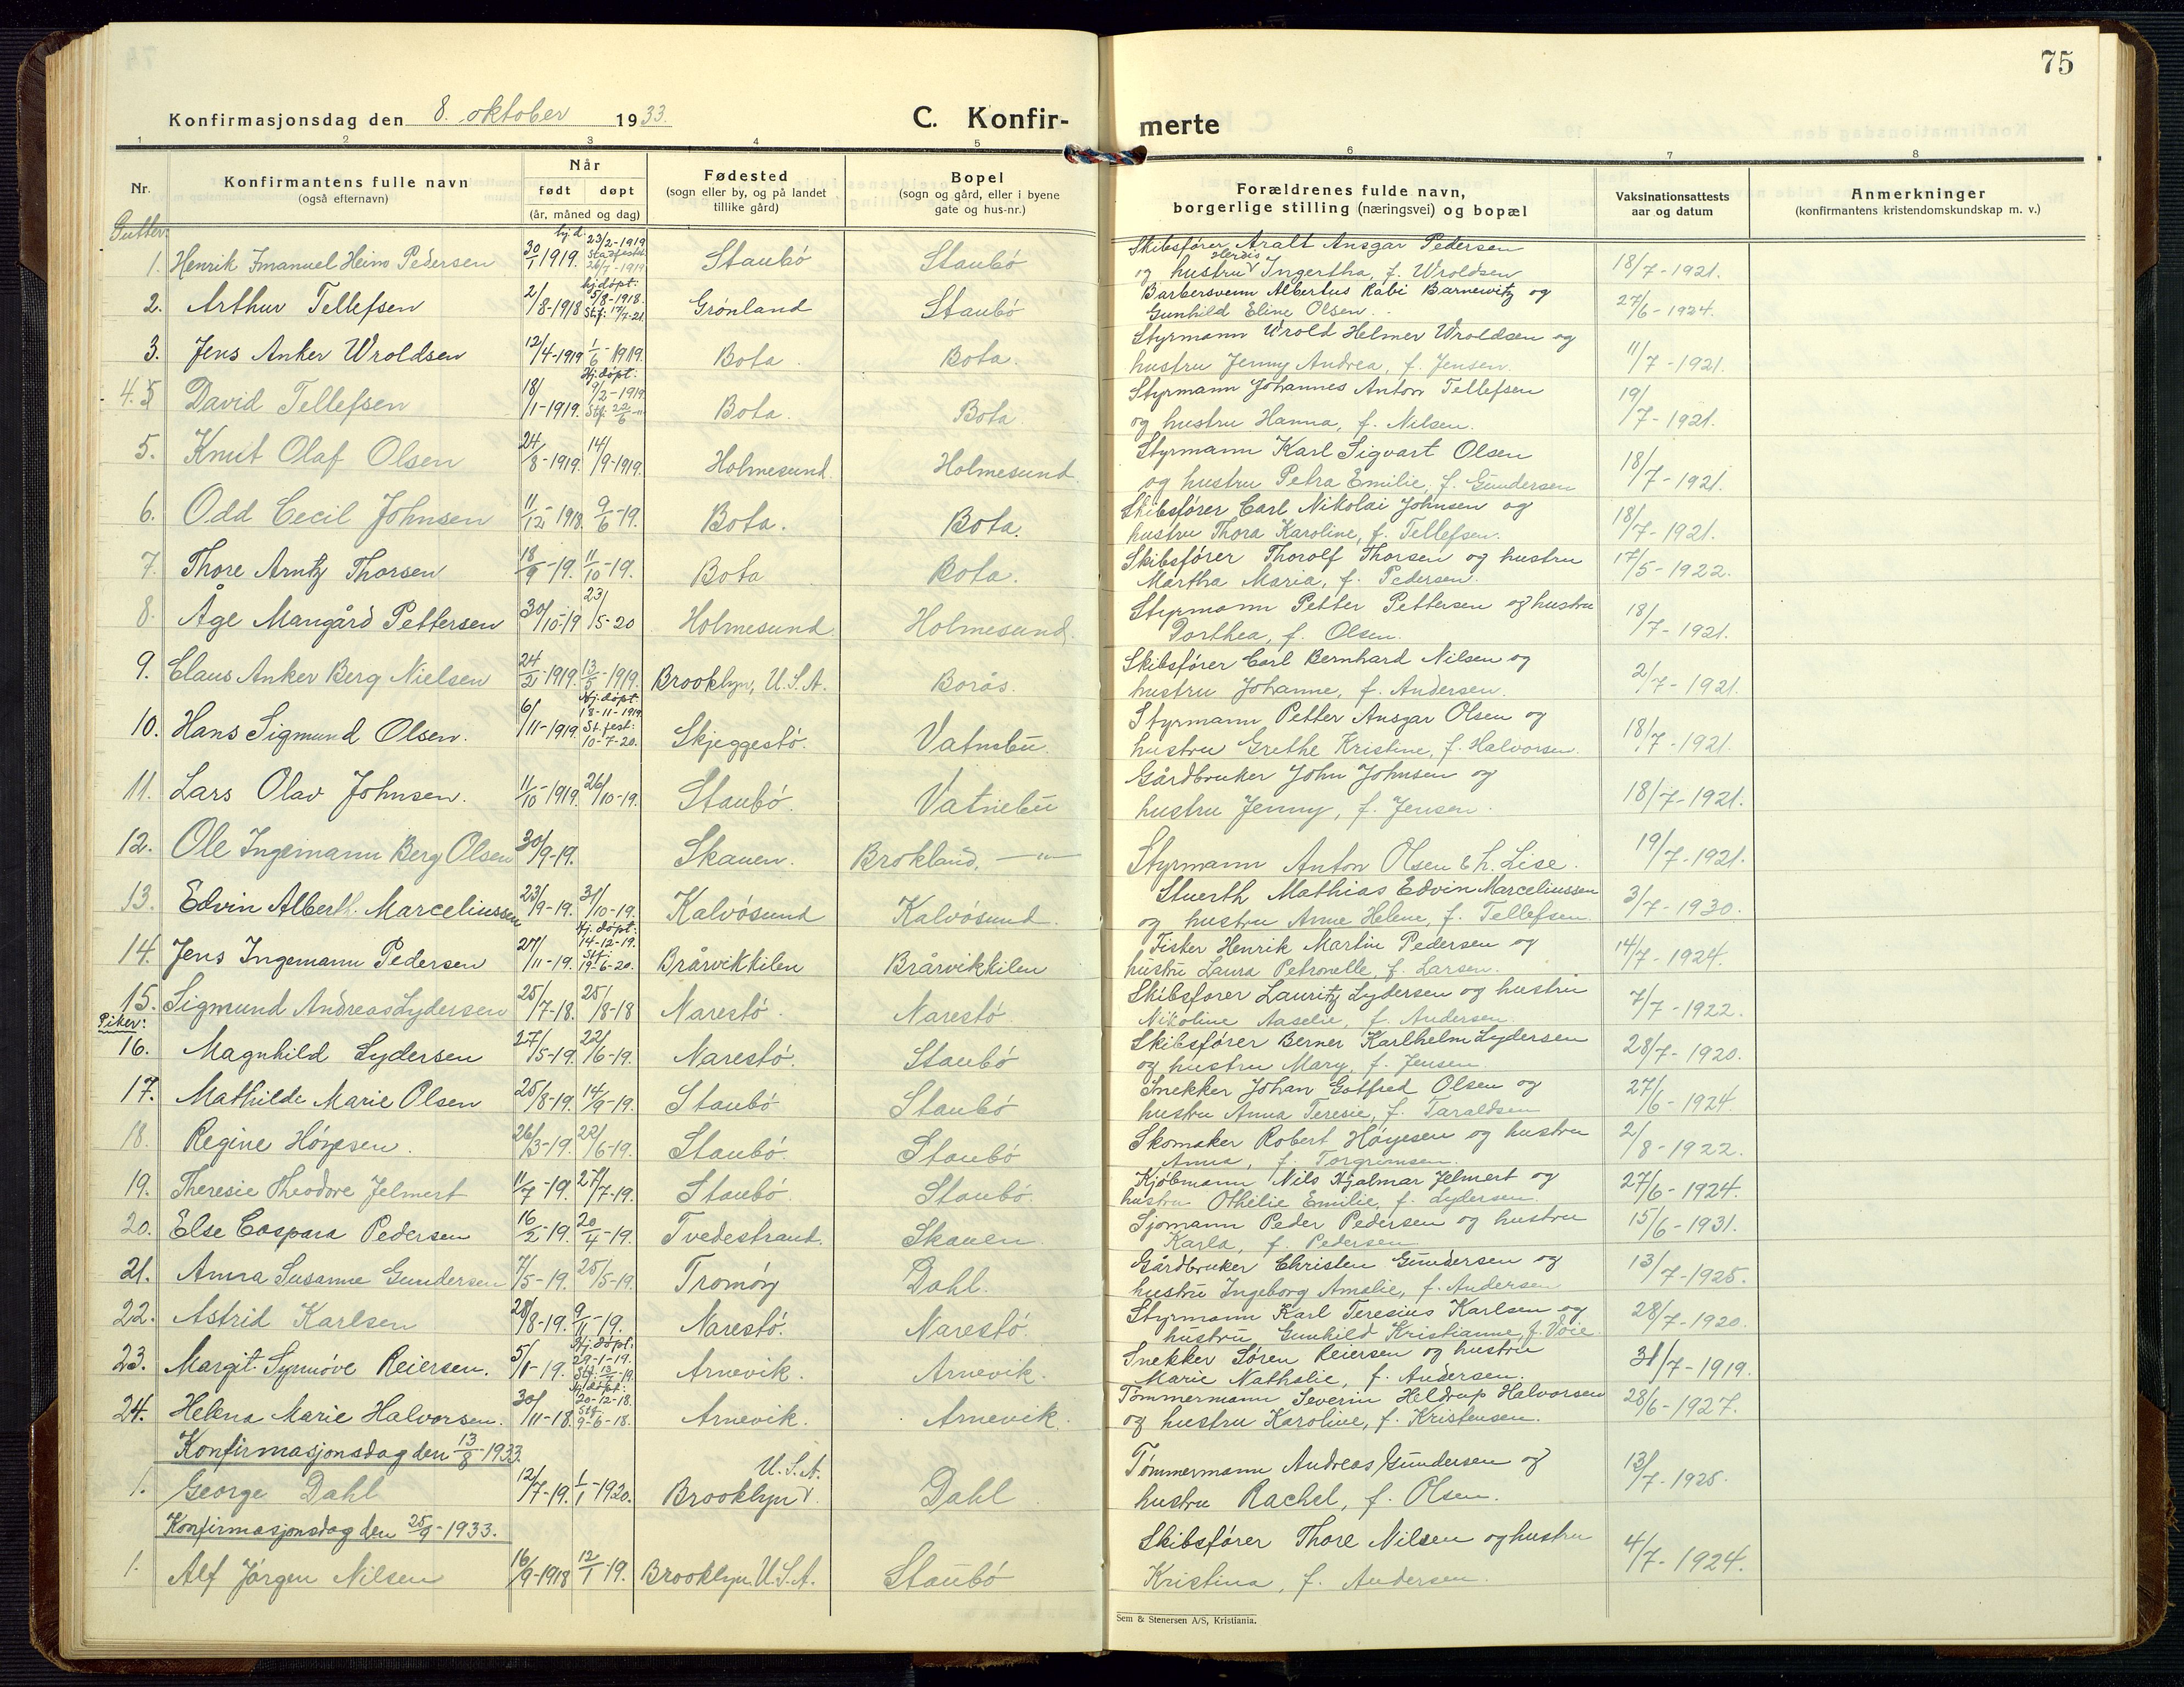 75
Konfirmasjonsdag den 8. oktober 1933.
C. Konfir-merte
1 2 3 4 5 6 7 8
Nr.
Konfirmantens fulle navn
(også efternavn)
Når
født døpt
(år, måned og dag)
Fødested
(sogn eller by, og på landet
tillike gård)
Bopel
(sogn og gård, eller i byene
gate og hus-nr.)
Forældrenes fulde navn,
borgerlige stilling (næringsvei) og bopæl
Vaksinationsattests
aar og datum
Anmerkninger
(konfirmantens kristendomskundskap m. v.)
Gutter:
1. Henrik Imanuel Heino Pedersen 30/1 1919. hj.d. 23/2-1919 Stadfestet 26/7-1919 Staubö Staubö Skibsfører Aralt Ansgar Pedersen
og hustru Herdis Ingertha, f. Wroldsen 18/7-1921.
2. Arthur Tellefsen 2/8-1918 hj.døpt: 5/8-1918. Stf: 17/7-21. Grönland Staubö Barbersvenn Albertus Rabi Barnewitz og
Gunhild Eline Olsen. 27/6-1924.
3. Jens Anker Wroldsen 12/4-1919 1/6-1919. Bota Bota. Styrmann Wrold Helmer Wroldsen og
hustru Jenny Andrea, f. Jensen. 11/7-1921.
4. David Tellefsen 18/1-1919. Hj.døpt: 9/2-1919 Stf: 22/6-" Bota. Bota. Styrmann Johannes Anton Tellefsen
og hustru Hanna, f. Nilsen. 19/7-1921.
5. Knut Olaf Olsen 24/8-1919. 14/9-1919. Holmesund. Holmesund. Styrmann Karl Sigvart Olsen
og hustru Petra Emilie, f. Gundersen 18/7-1921.
6. Odd Cecil Johnsen 11/12-1918. 9/6-19. Bota. Bota. Skibsfører Carl Nikolai Johnsen og
hustru Thora Karoline, f. Tellefsen. 18/7-1921.
7. Thore Arntz Thorsen 18/9-19. 11/10-19. Bota Bota. Skibsfører Thorolf Thorsen og hustru
Martha Maria, f. Pedersen. 17/5-1922.
8. Åge Mangård Pettersen 30/10-19 23/5-20 Holmesund Holmesund. Styrmann Petter Pettersen og hustru
Dorthea, f. Olsen. 18/7-1921.
9. Claus Anker Berg Nielsen 24/2-1919. 13/5-1919. Brooklyn, U.S.A. Borås. Skibsfører Carl Bernhard Nilsen og
hustru Johanne, f. Andersen. 2/7-1921.
10. Hans Sigmund Olsen. 6/11-1919. Hj.døpt 18-11-1919 St.fest: 10-7-20. Skjeggestö. Vatnebu. Styrmann Petter Ansgar Olsen og
hustru Grethe Kristine, f. Halvorsen. 18/7-1921.
11. Lars Olav Johnsen. 11/10-1919. 26/10-19. Staubö. Vatnebu Gårdbruker John Johnsen og
hustru Jenny, f. Jensen. 18/7-1921.
12. Ole Ingemann Berg Olsen 30/9-19. Skauen. Brokland, —"— Styrmann Anton Olsen & h. Lise. 19/7-1921.
13. Edvin Alberth. Marceliussen 23/9-19. 31/10-19. Kalvösund Kalvösund. Stuerth Mathias Edvin Marceliussen
og hustru Anne Helene, f. Tellefsen. 3/7-1930.
14. Jens Ingemann Pedersen 27/11-19. Hj.døpt: 14-12-19. Stf: 19-6-20. Brårvikkilen Brårvikkilen Fisker Henrik Martin Pedersen og
hustru Laura Petronelle, f. Larsen. 14/7-1924.
15. Sigmund Andreas Lydersen 25/7-18. 25/8-18 Narestö. Narestö. Skibsfører Lauritz Lydersen og hustru
Nikoline Aaselie, f. Andersen. 7/7-1922.
Piker:
16. Magnhild Lydersen 27/5-19. 22/6-19. Narestö. Staubö Skibsfører Berner Karlhelm Lydersen
og hustru Mary, f. Jensen. 28/7-1920.
17. Mathilde Marie Olsen 25/8-19. 14/9-19. Staubö Staubö Snekker Johan Gotfred Olsen og
hustru Anna Teresie, f. Taraldsen 27/6-1924.
18. Regine Höyesen. 26/3-19. 22/6-19. Staubö. Staubö Skomaker Robert Höyesen og hustru
Anna, f. Torgrimsen. 2/8-1922.
19. Theresie Theodore Jelmert 11/7-19. 27/7-19. Staubö. Staubö. Kjøbmann Nils Hjalmar Jelmert og
hustru Othilie Emilie, f. Lydersen. 27/6-1924.
20. Else Caspara Pedersen 16/2-19. 20/4-19. Tvedestrand. Skauen. Sjømann Peder Pedersen og hustru
Karla, f. Pedersen 15/6-1931.
21. Anna Susanne Gundersen 7/5-19. 25/5-19. Tromöy Dahl. Gårdbruker Christen Gundersen og
hustru Ingeborg Amalie, f. Andersen 13/7-1925.
22. Astrid Karlsen 28/8-19. 9/11-19. Narestö. Narestö. Styrmann Karl Teresius Karlsen og
hustru Gunhild Kristianne, f. Voie. 28/7-1920.
23. Margit Synnöve Reiersen. 5/1-19. Hj.döpt: 29-1-19. Arnevik. Arnevik. Snekker Sören Reiersen og hustru
Marie Nathalie, f. Andersen. 31/7-1919.
24. Helena Marie Halvorsen. 30/11-18. Hj.døpt: 20-12-18. Stf. 9-6-18. Arnevik. Arnevik. Tömmermann Severin Heldrup Halvorsen
og hustru Karoline, f. Kristensen. 28/6-1927.
Konfirmasjonsdag den 13/8-1933.
1. George Dahl 12/7-19. 1/1-1920. Brooklyn U.S.A. Dahl Tömmermann Andreas Gundersen og
hustru Rachel, f. Olsen. 13/7-1925.
Konfirmasjonsdag den 25/9-1933.
1. Alf Jörgen Nilsen 16/9-1918 12/1-19. Brooklyn. U.S.A. Staubö Skibsfører Thore Nilsen og hustru
Kristina, f. Andersen. 4/7-1924.
Sem & Stenersen A/S, Kristiania.